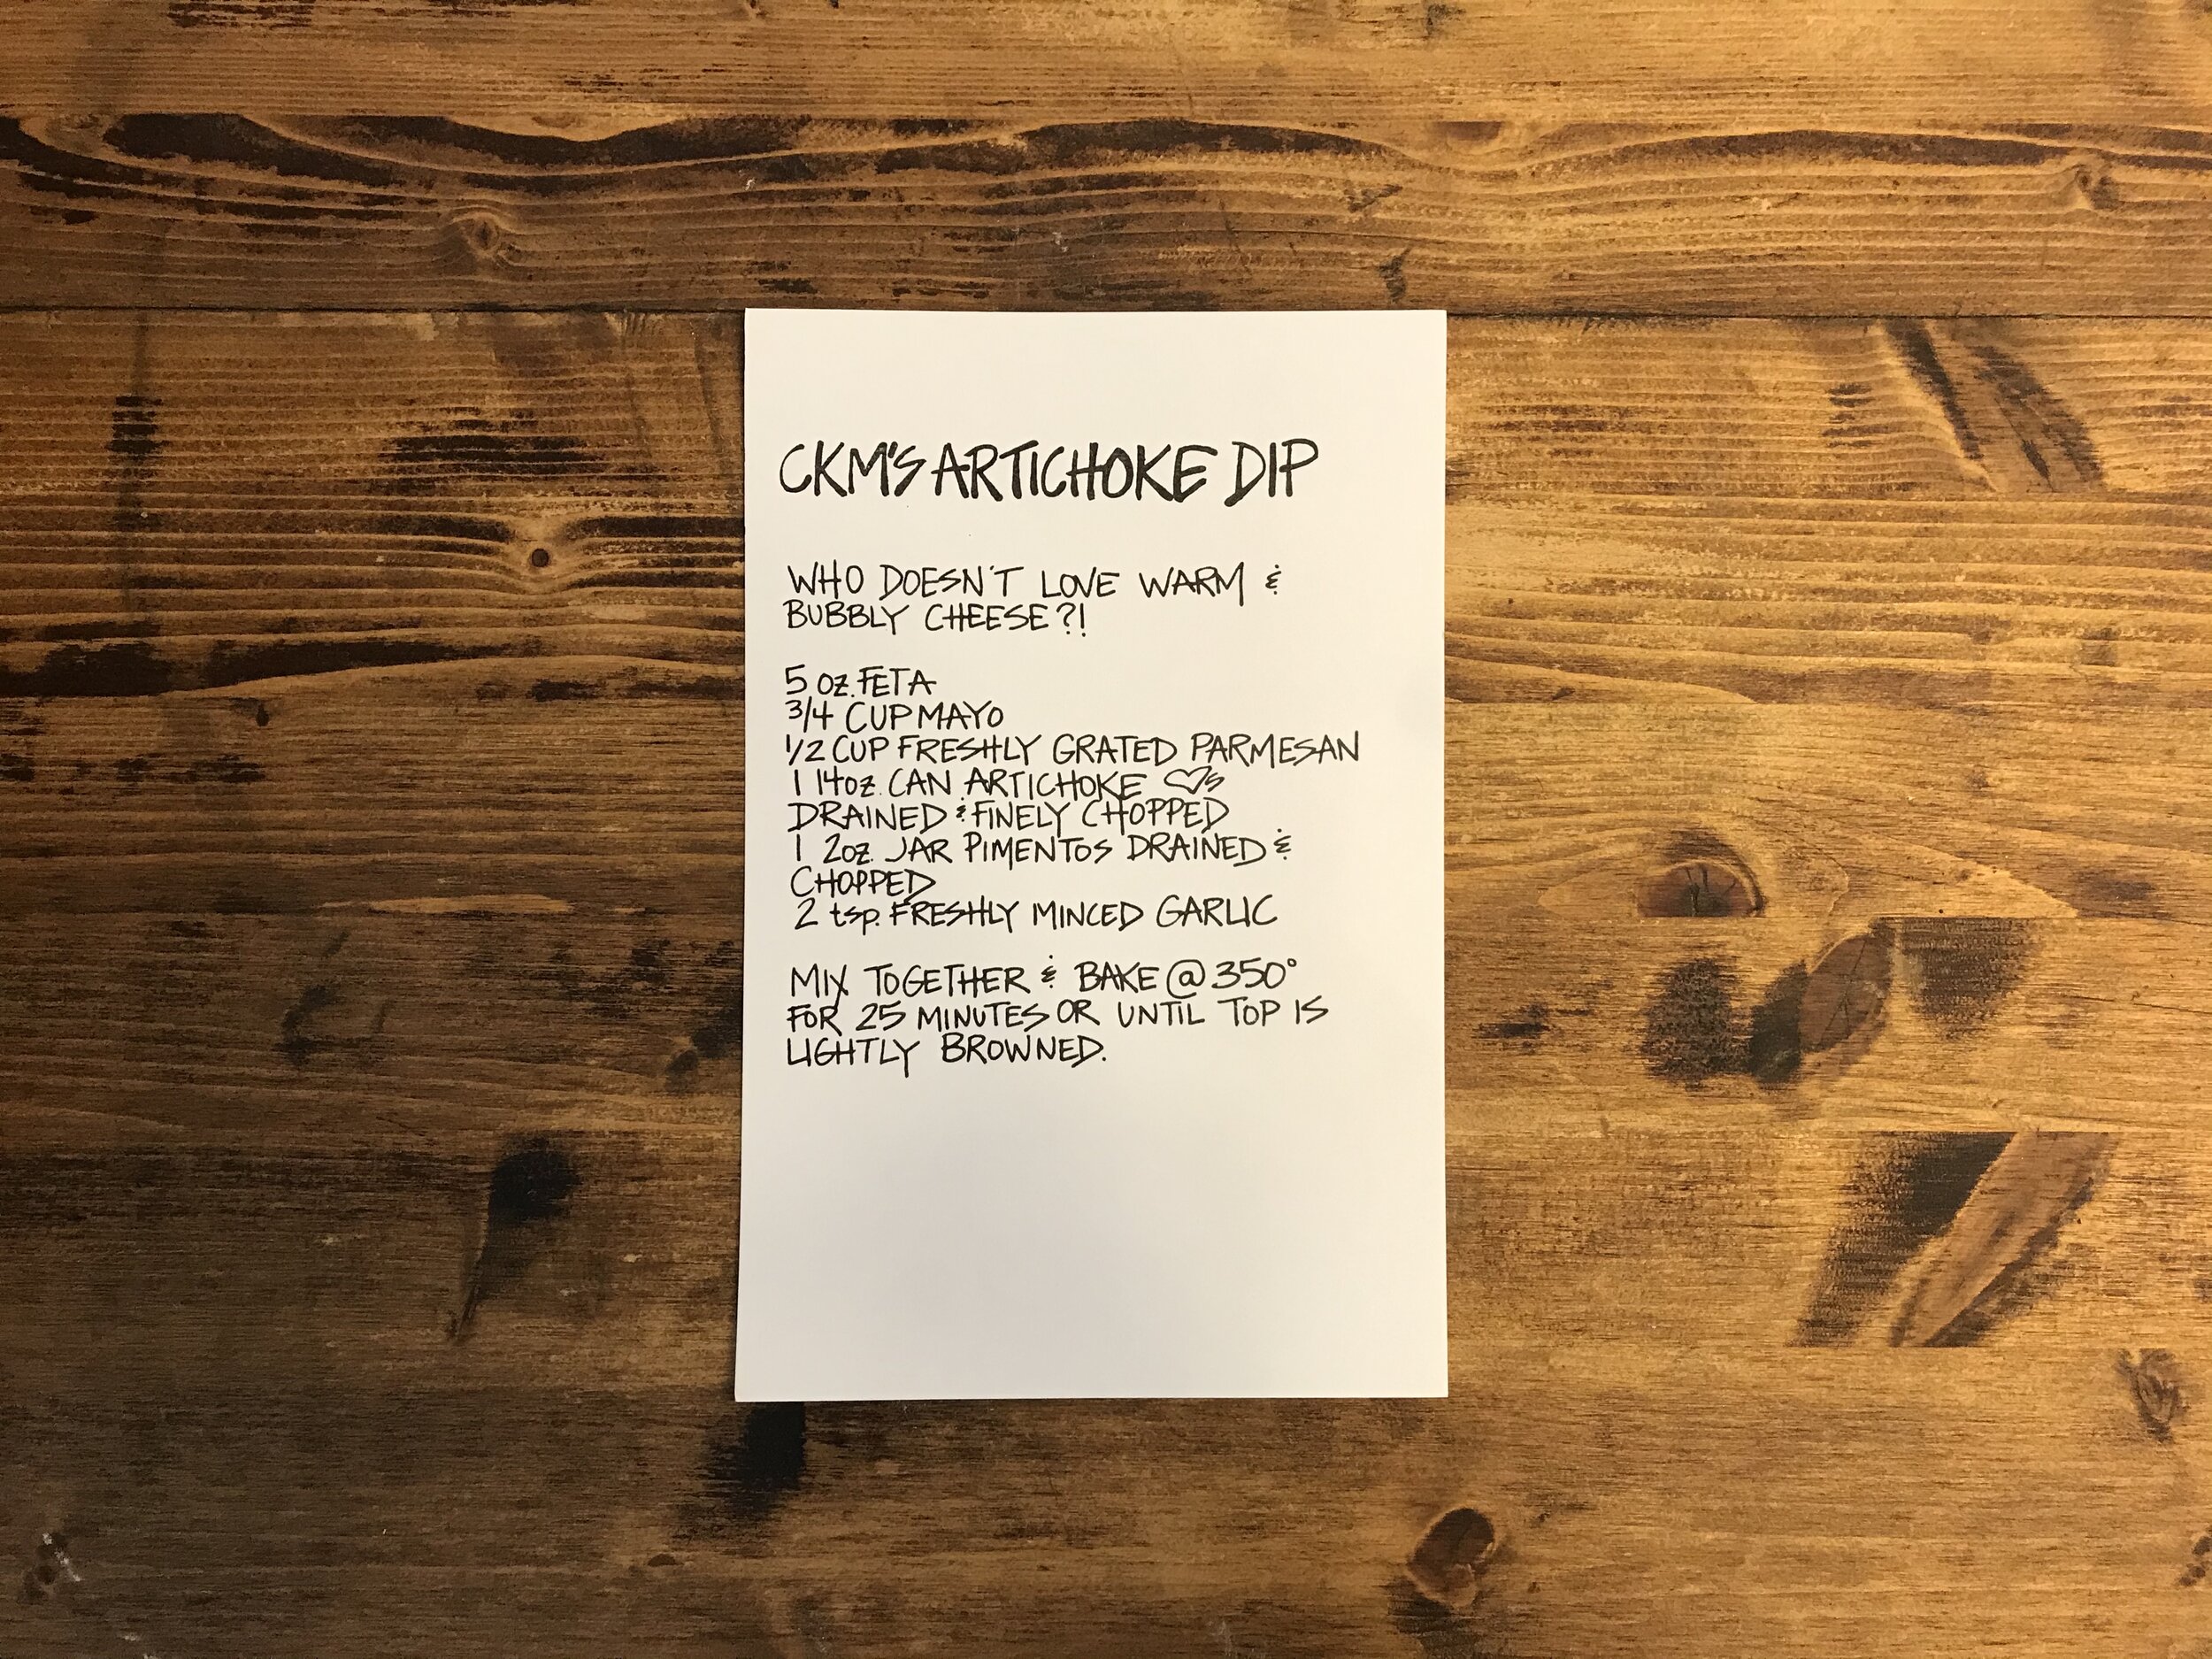 CKM'S ARTICHOKE DIP
WHO DOESN'T LOVE WARM &
BUBBLY CHEESE?!
5 oz. FETA
3/4 CUP MAYO
1/2 CUP FRESHLY GRATED PARMESAN
1 14oz. CAN ARTICHOKE ♡s
DRAINED & FINELY CHOPPED
1 2oz. JAR PIMENTOS DRAINED &
CHOPPED
2 tsp. FRESHLY MINCED GARLIC
MIX TOGETHER & BAKE @ 350°
FOR 25 MINUTES OR UNTIL TOP IS
LIGHTLY BROWNED.